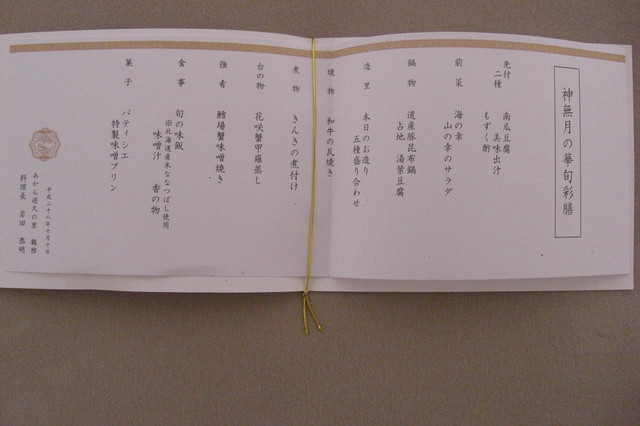 神無月の華旬彩膳
先付二種
南瓜豆腐 美味出汁
もずく酢
前菜
海の幸
山の幸のサラダ
鍋物
道産豚昆布鍋
占地 湯葉豆腐
造里
本日のお造り
五種盛り合わせ
焼物
和牛の瓦焼き
煮物
きんきの煮付け
台の物
花咲蟹甲羅蒸し
強肴
鱈場蟹味噌焼き
食事
旬の味飯
※北海道産米ななつぼし使用
味噌汁 香の物
菓子
パティシエ
特製味噌プリン
平成二十八年十月十日
あかん遊久の里 鶴雅
料理長 岩田 恭明